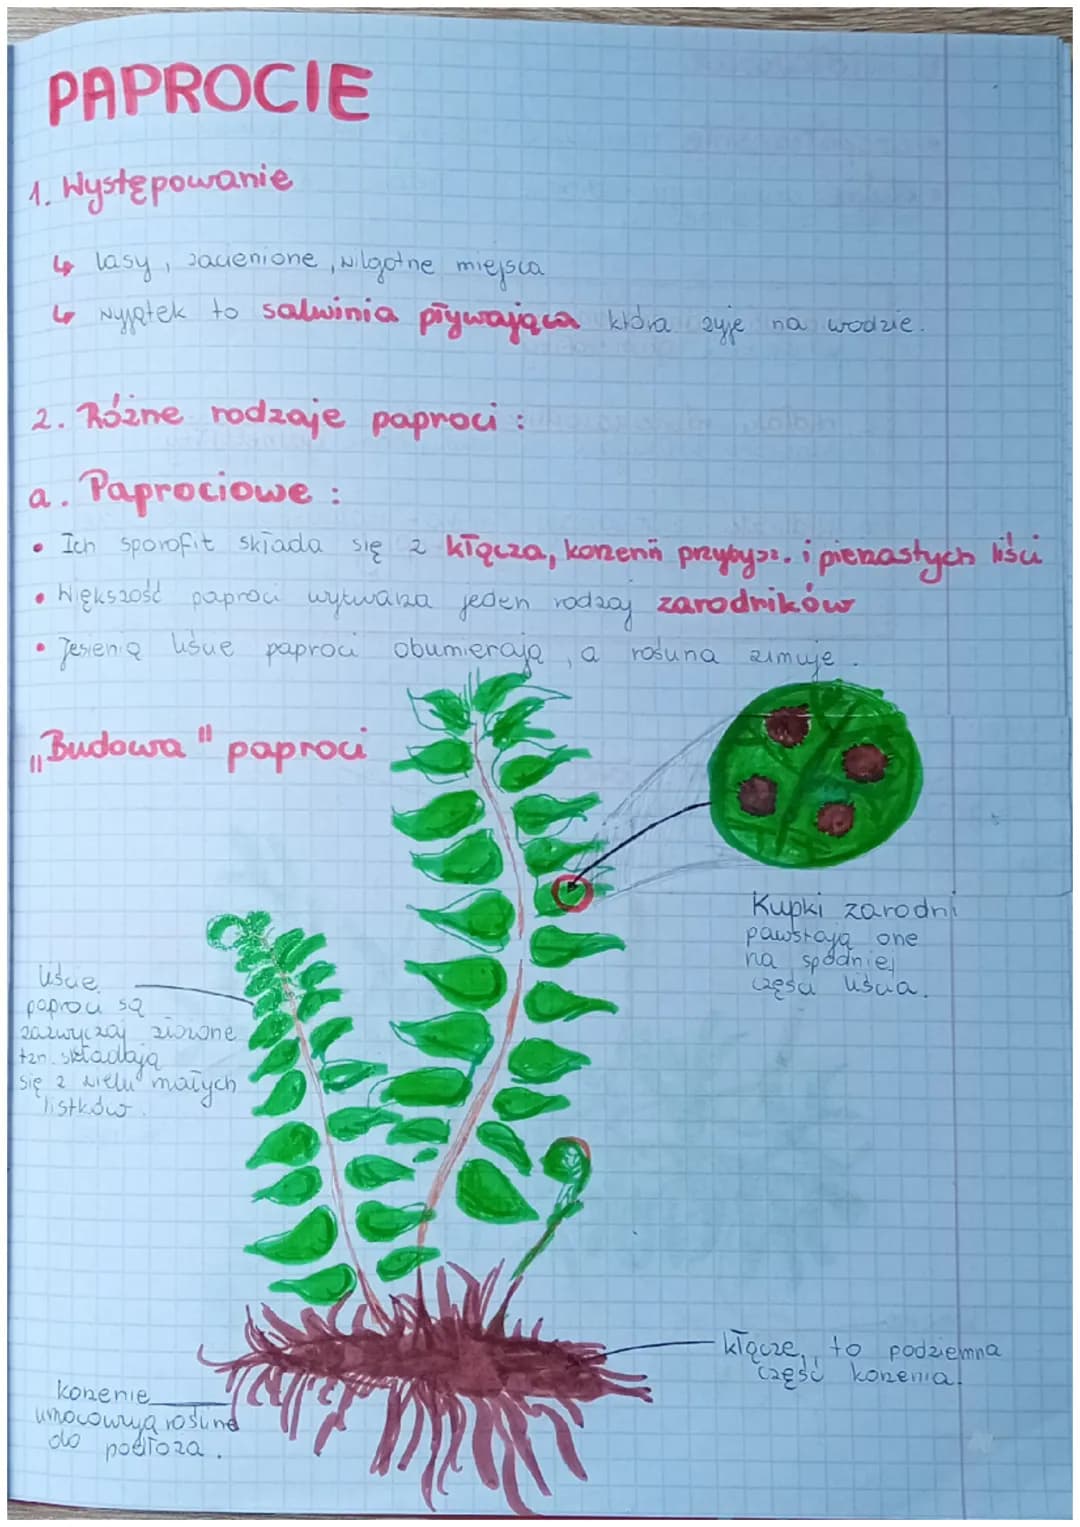 PAPROCIE
1. Występowanie
↳ lasy, zacienione, wilgotne miejsca
↳ wyjątek to salwinia pływająca która żyje na wodzie.
2. Różne rodzaje paproci:
a. Paprociowe:
• Ich sporofit składa się z kłącza, korzeni przybysz. i pierzastych liści
• Większość paproci wytwarza jeden rodzaj zarodników
• Jesienią liście paproci obumierają, a roślina zimuje.
„Budowa" paproci
Kupki zarodni
pawstają one
na spodniej
części liścia.
liście
paproci są
zazwyczaj złożone
tzn. składają
się z wielu małych
listków.
kłącze, to podziemna
część korzenia.
korzenie
umocowują roślinę
do podłoża.